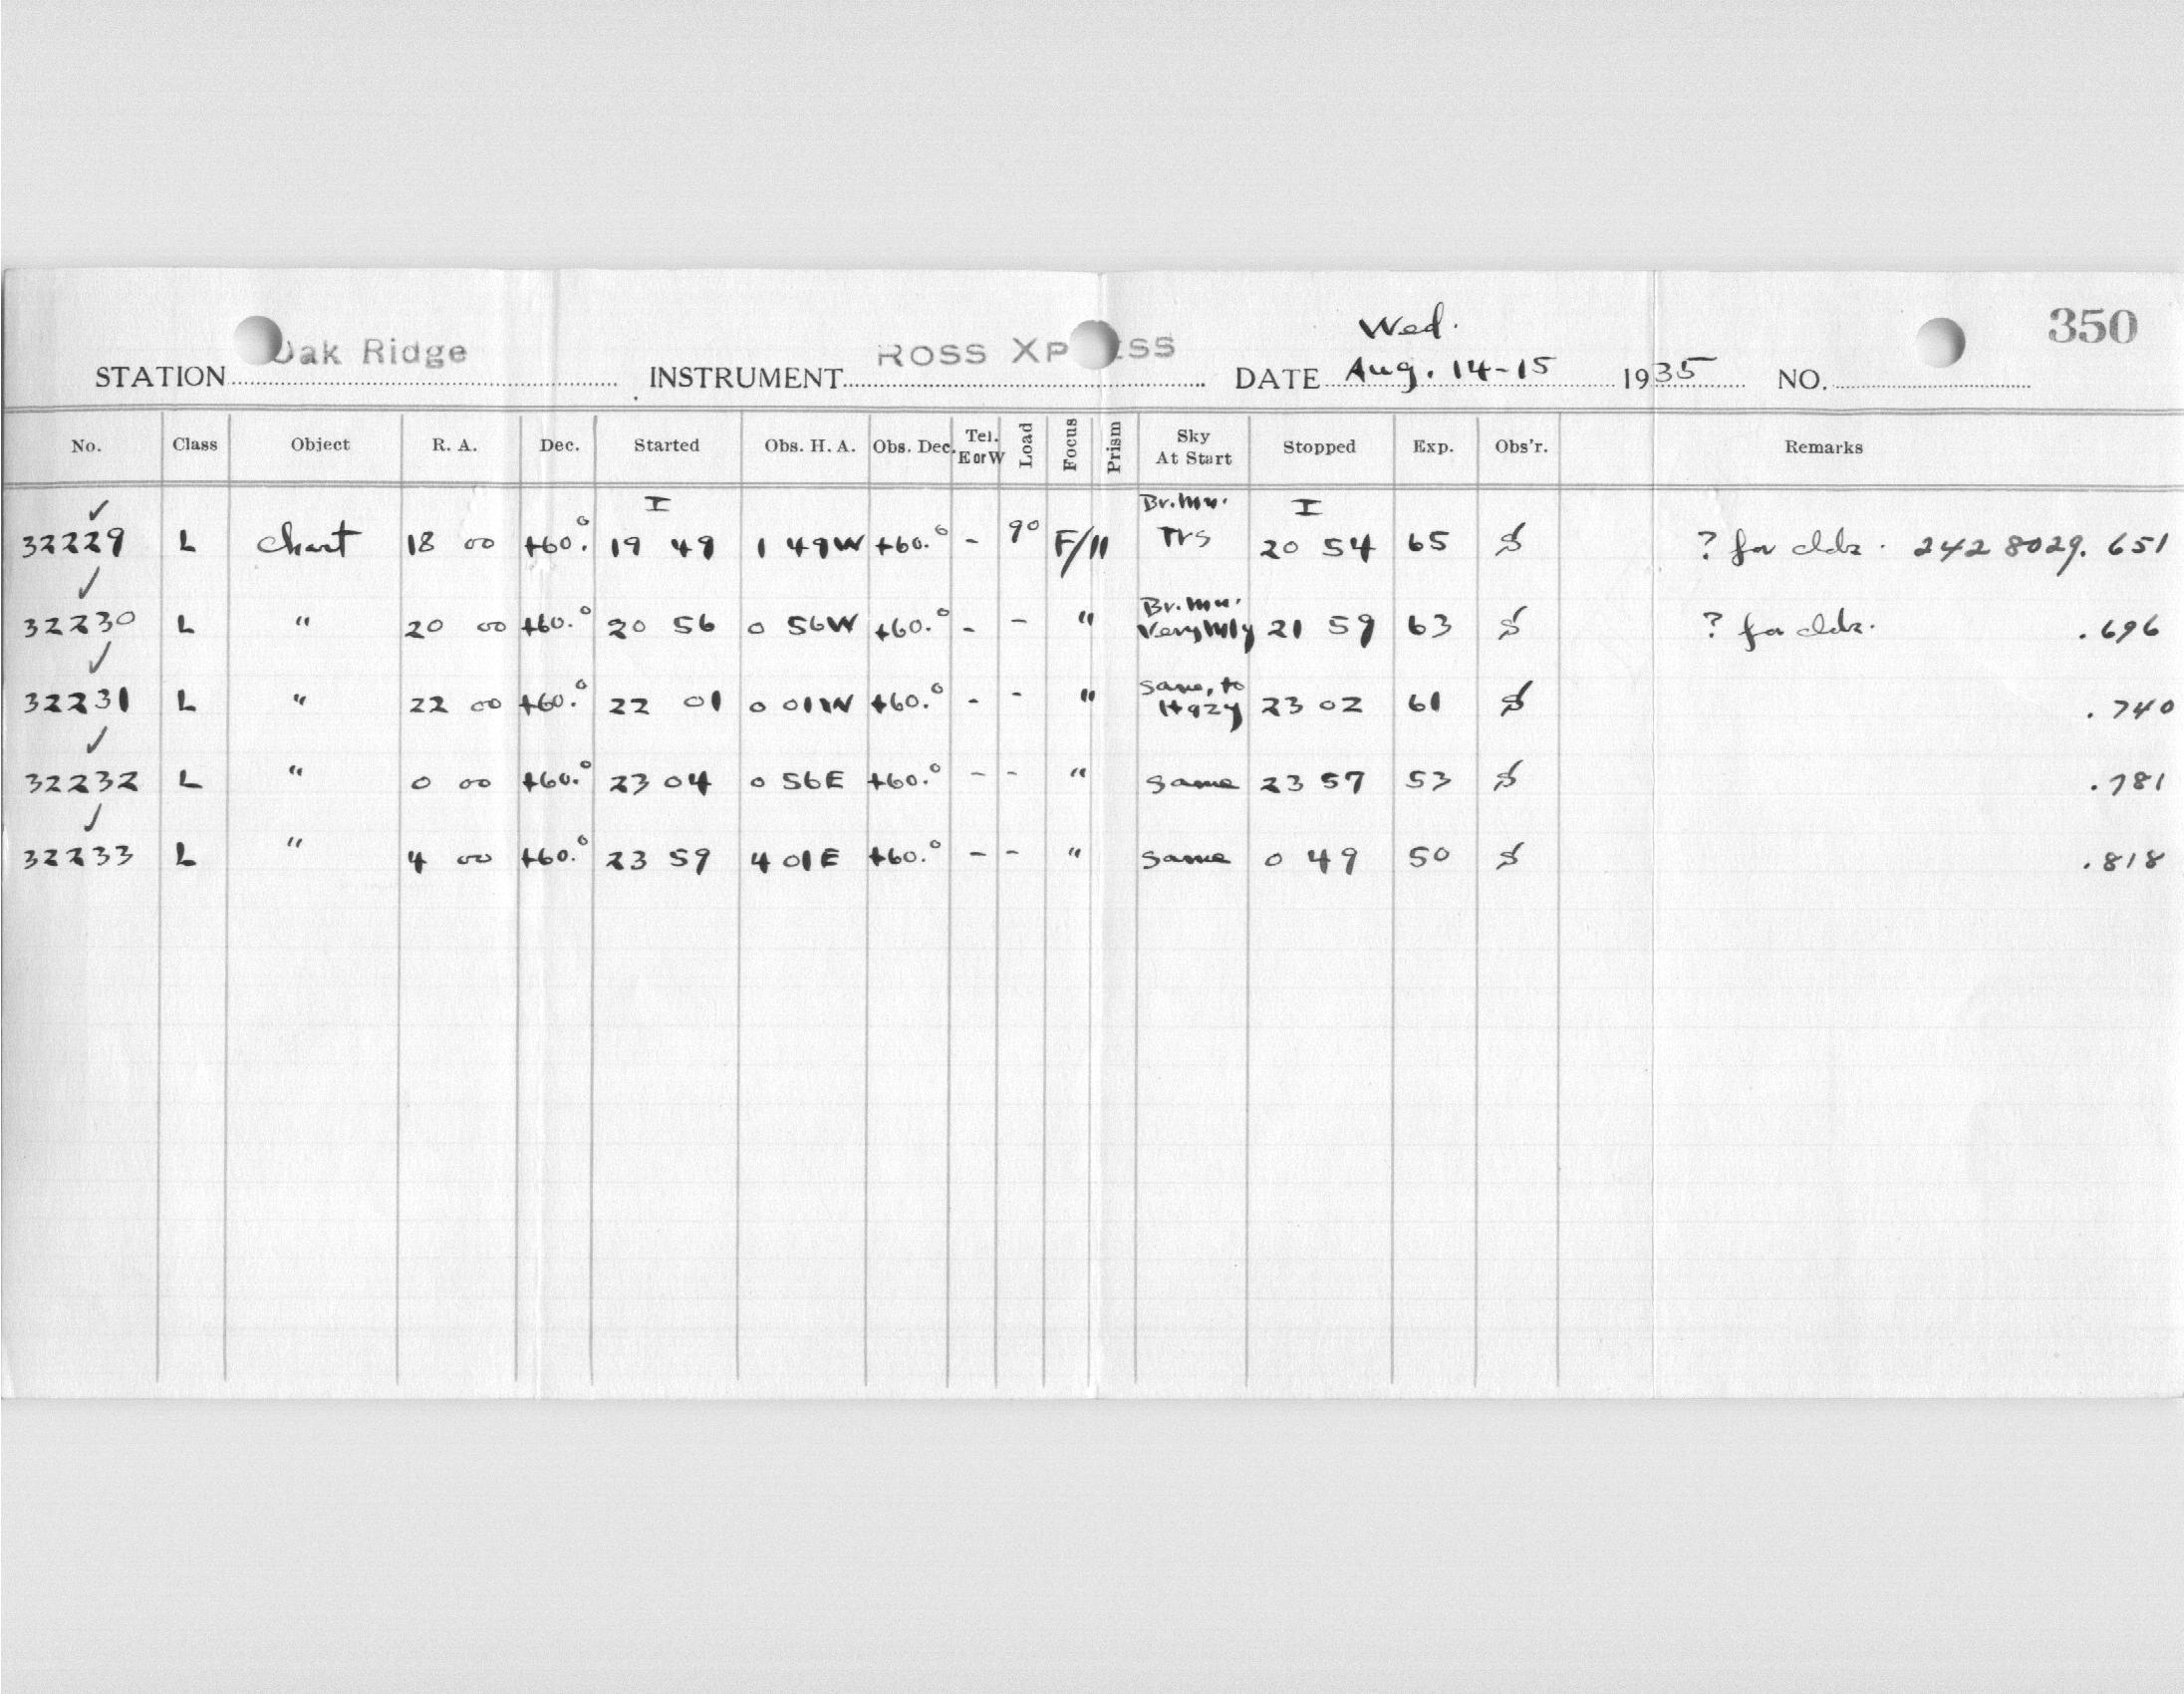 Wed.
350
STATION Oak Ridge INSTRUMENT ROSS XP ESS DATE Aug. 14-15 1935 NO.
No. Class Object R. A. Dec. Started Obs. H. A. Obs. Dec. Tel. E or W Load Focus Prism Sky At Start Stopped Exp. Obs'r. Remarks
✓ I Br. Mn. I
32229 L Chart 18 00 +60.° 19 49 1 49W +60.° - 9° F/11 Trs 20 54 65 ? for clds. 242 8029. 651
✓ Br. Mn.
32230 L " 20 00 +60.° 20 56 0 56W +60.° - - " Very Mly 21 59 63 ? for clds. .696
✓ Same, to
32231 L " 22 00 +60.° 22 01 0 01W +60.° - - " Hazy 23 02 61 .740
✓
32232 L " 0 00 +60.° 23 04 0 56E +60.° - - " Same 23 57 53 .781
✓
32233 L " 4 00 +60.° 23 59 4 01E +60.° - - " Same 0 49 50 .818